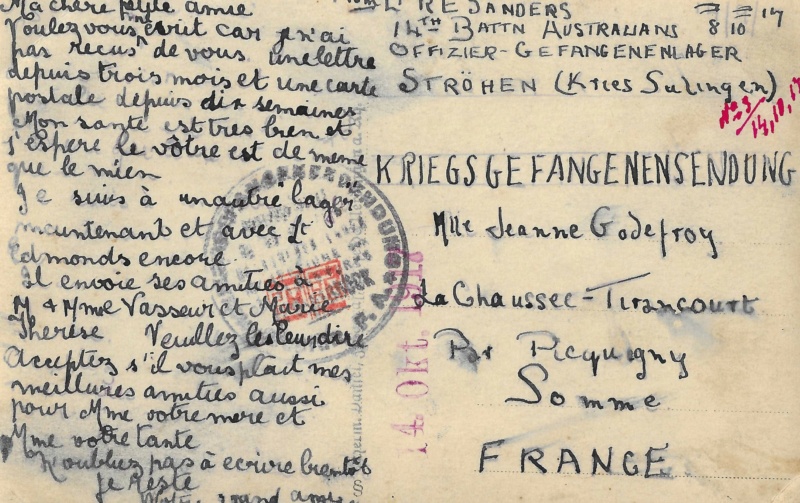 Ma chère petite amie
Voulez vous m'ecrit car je n'ai
pas recus de vous une lettre
depuis trois mois et une carte
postale depuis dix semaines
Mon santé est tres bien et
j'espere le vôtre est de meme
que le mien
Je suis à un autre "lager"
maintenant et avec Lt
Edmonds encore.
Il envoie ses amities à
M. & Mme Vasseur et Marie
Thérèse Veuillez les leur dire
Acceptez s'il vous plait mes
meillures amities aussi
pour Mme votre mere et
Mme votre tante
N'oubliez pas à ecrire bientot
Je reste
Votre grand ami
Lt R E SANDERS
14TH BATTN AUSTRALIANS
8/10 17
OFFIZIER-GEFANGENENLAGER
STRÖHEN (Kries Sulingen)
No 3/
14,10,17
KRIEGSGEFANGENENSENDUNG
Mlle Jeanne Godefroy
La Chaussee-Tirancourt
Par Picquigny
Somme
FRANCE
14. Okt. 1918
F. A.